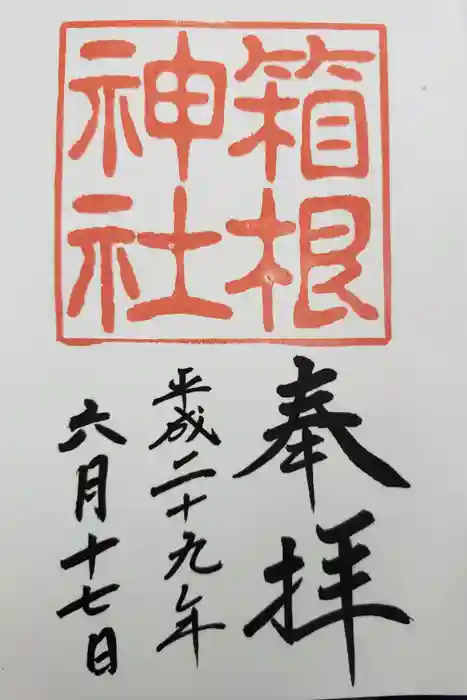 箱根
神社
奉拝
平成二十九年
六月十七日